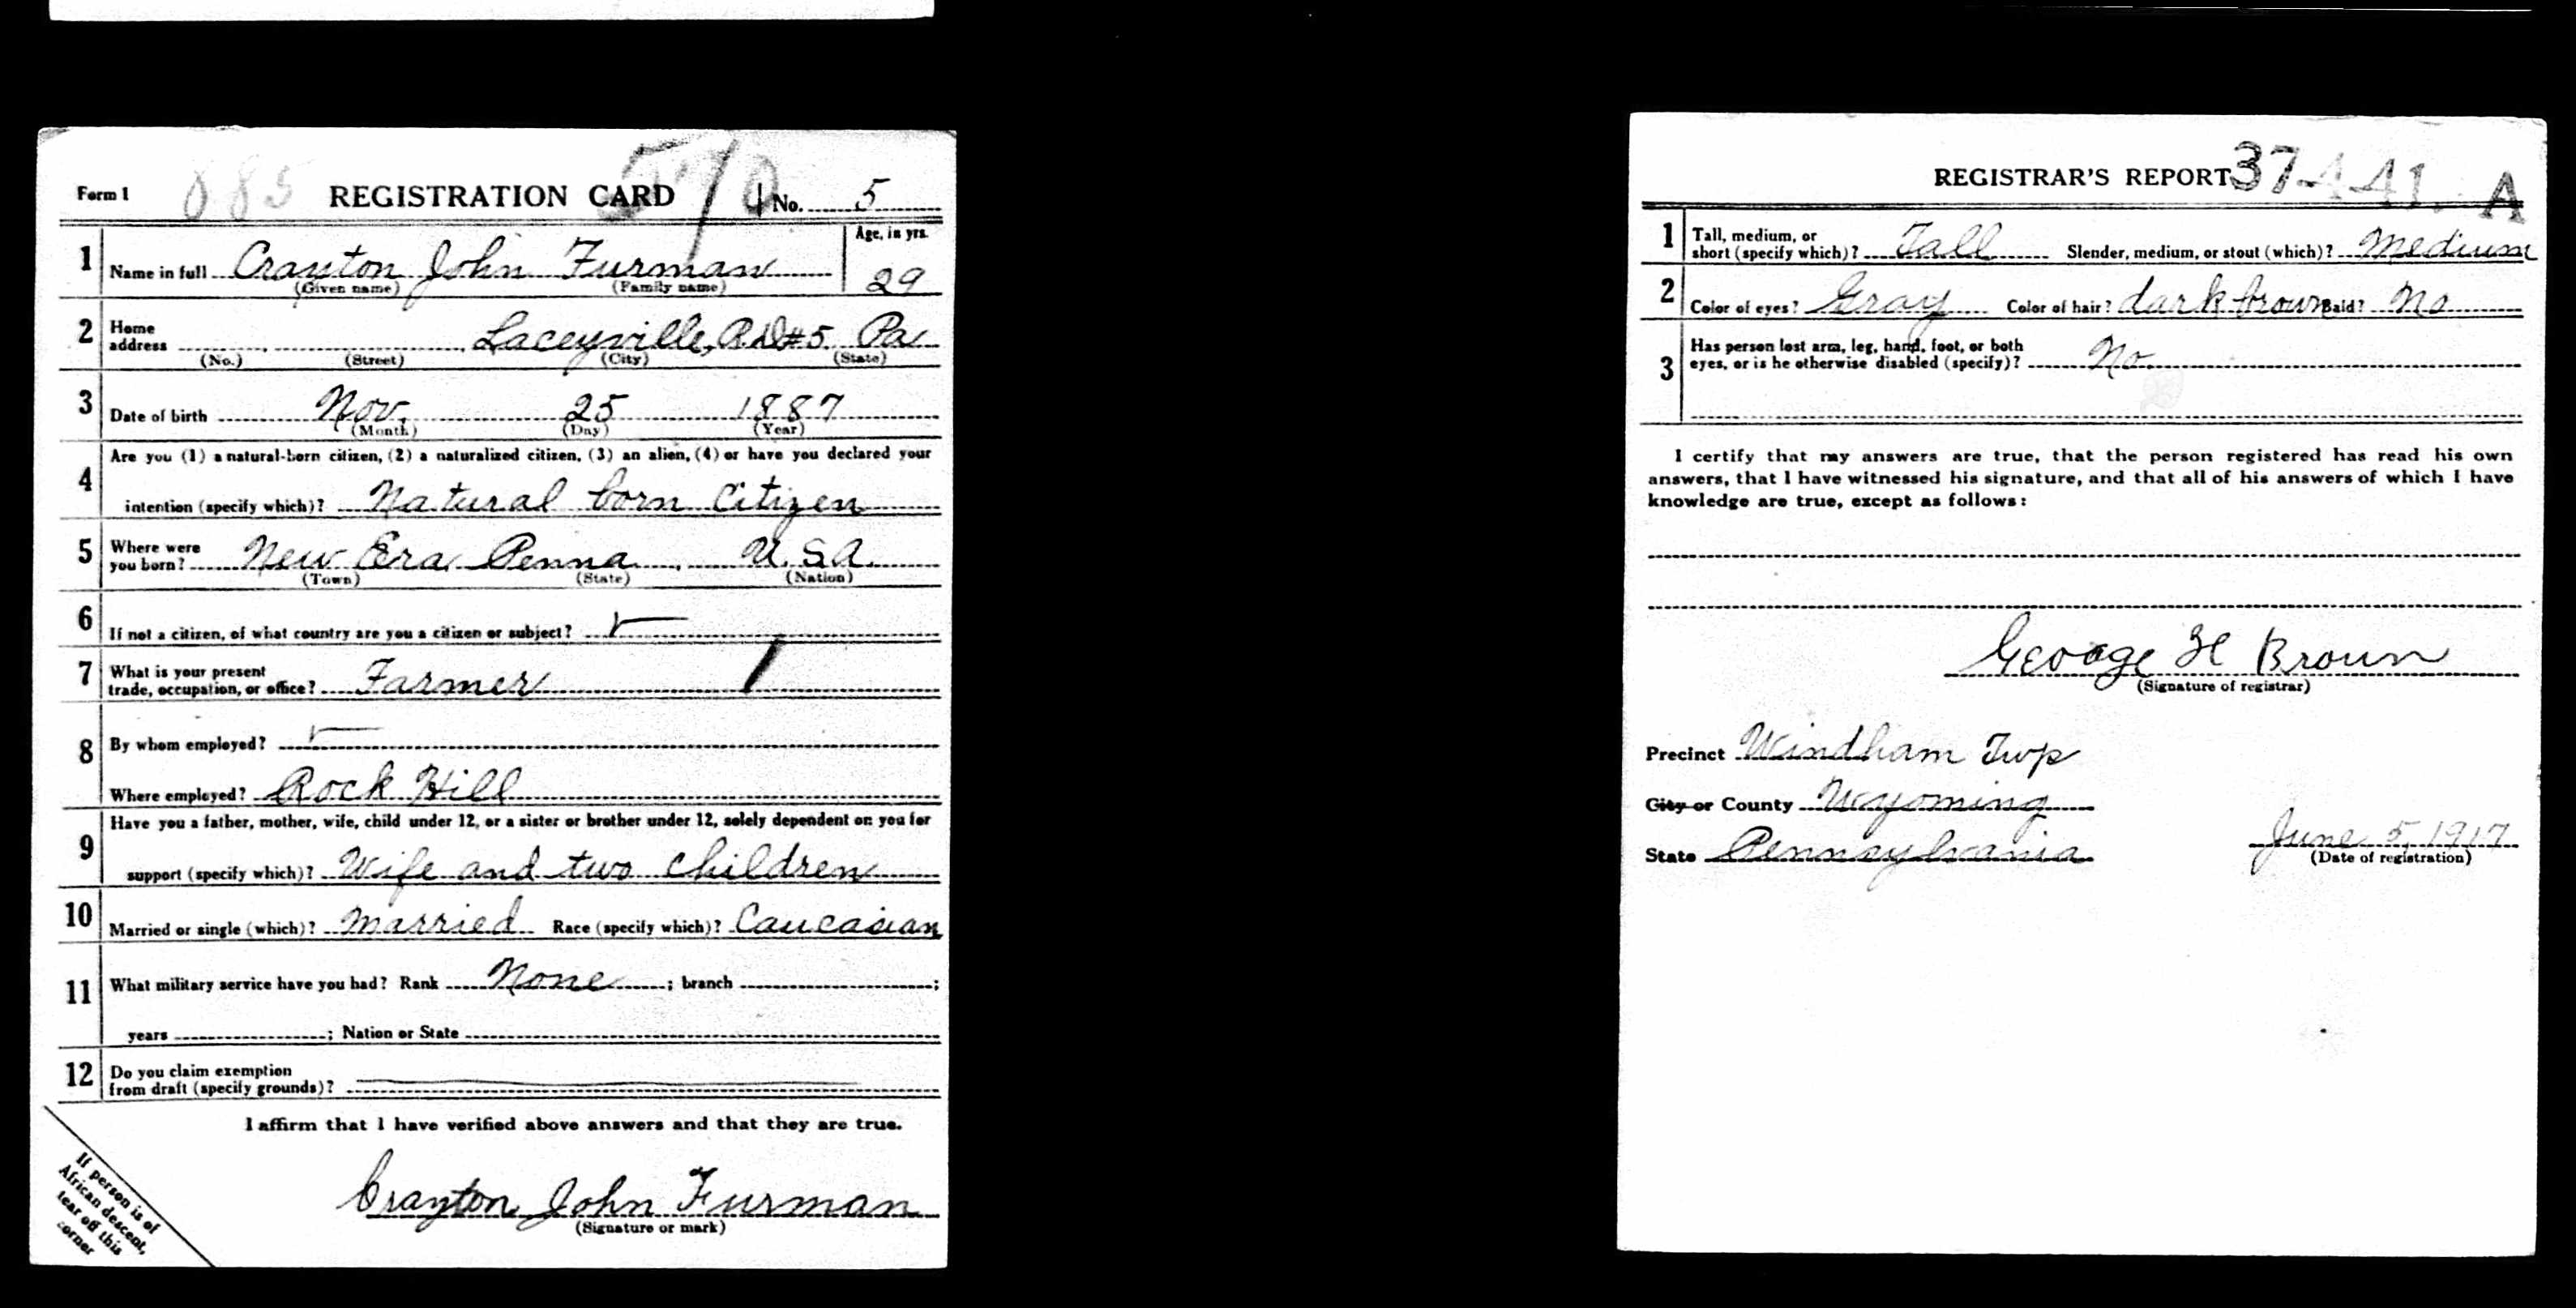 Form 1 885 REGISTRATION CARD 570 No. 5
1 Name in full Crayton John Furman Age, in yrs. 29
(Given name) (Family name)
2 Home address Laceyville, R.D.#5. Pa
(No.) (Street) (City) (State)
3 Date of birth Nov. 25 1887
(Month) (Day) (Year)
4 Are you (1) a natural-born citizen, (2) a naturalized citizen, (3) an alien, (4) or have you declared your
intention (specify which)? Natural born Citizen
5 Where were you born? New Era Penna. U.S.A.
(Town) (State) (Nation)
6 If not a citizen, of what country are you a citizen or subject?
7 What is your present
trade, occupation, or office? Farmer
8 By whom employed?
Where employed? Rock Hill
9 Have you a father, mother, wife, child under 12, or a sister or brother under 12, solely dependent on you for
support (specify which)? Wife and two children
10 Married or single (which)? Married Race (specify which)? Caucasian
11 What military service have you had? Rank None ; branch ;
years ; Nation or State
12 Do you claim exemption
from draft (specify grounds)?
I affirm that I have verified above answers and that they are true.
Crayton John Furman
(Signature or mark)
If person is of
African descent,
tear off this
corner
REGISTRAR'S REPORT 37-4-41. A
1 Tall, medium, or
short (specify which)? Tall Slender, medium, or stout (which)? Medium
2 Color of eyes? Gray Color of hair? dark brown Bald? No
3 Has person lost arm, leg, hand, foot, or both
eyes, or is he otherwise disabled (specify)? No.
I certify that my answers are true, that the person registered has read his own
answers, that I have witnessed his signature, and that all of his answers of which I have
knowledge are true, except as follows:
George H Brown
(Signature of registrar)
Precinct Windham Twp
City or County Wyoming
State Pennsylvania June 5, 1917
(Date of registration)